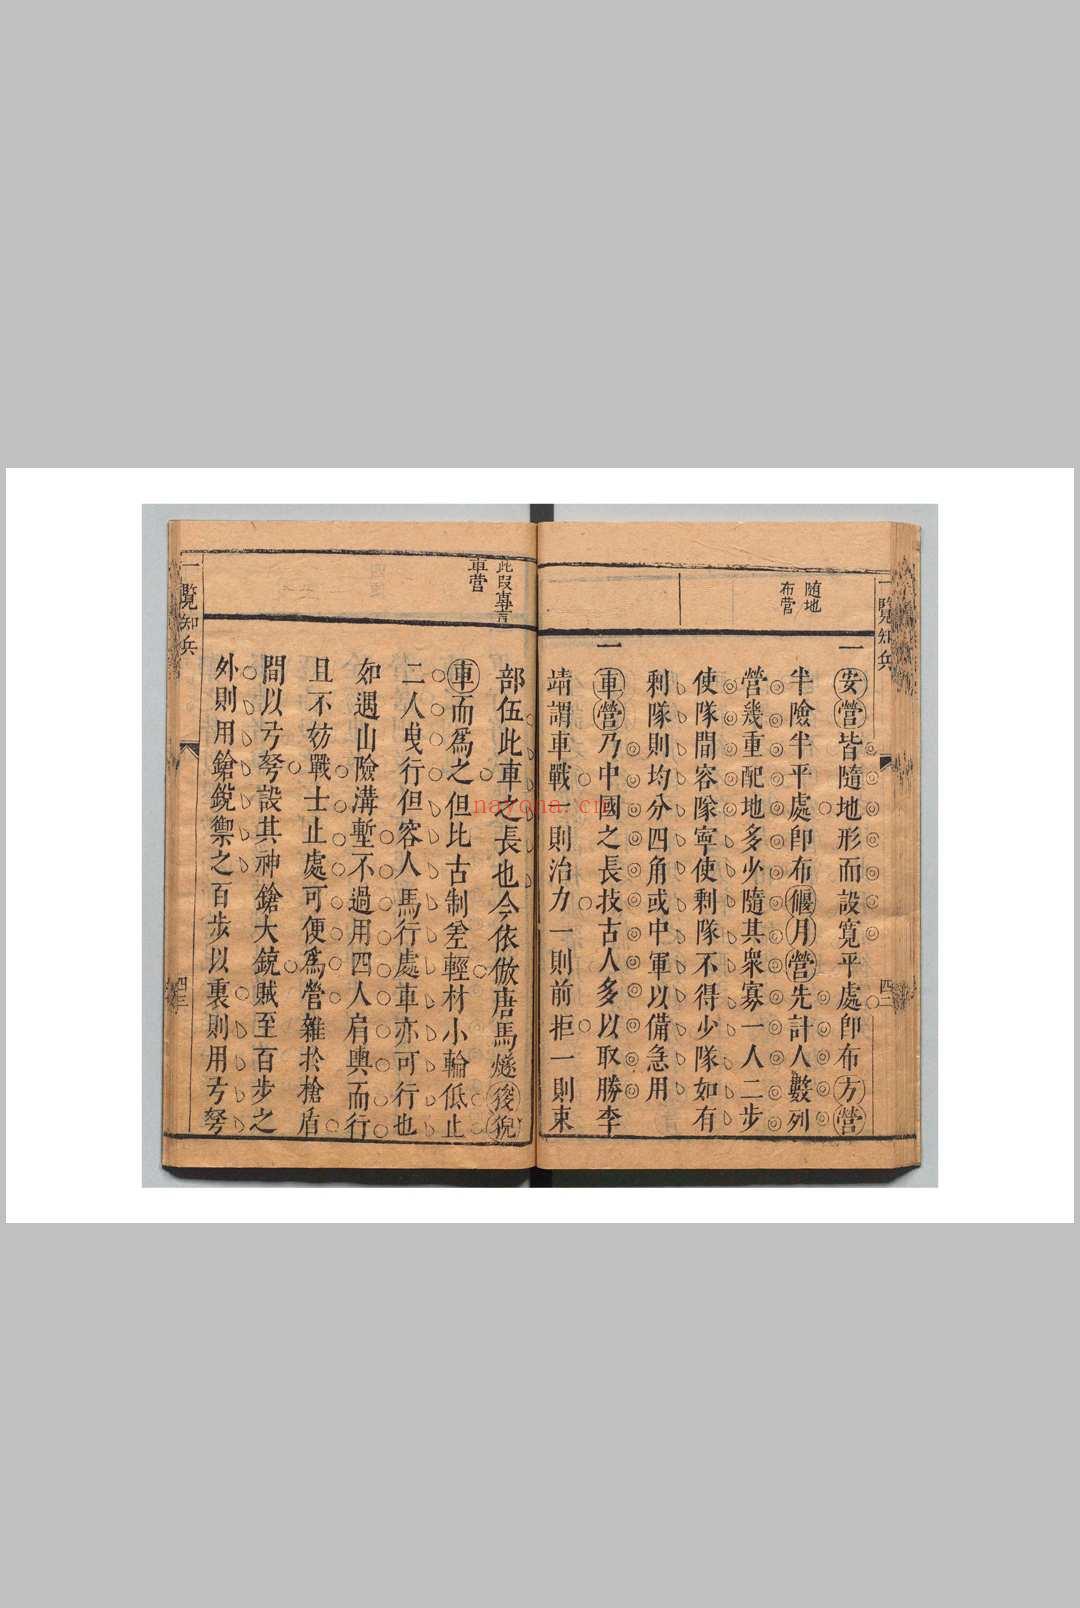 一覽知兵
四二
随地
布營
一安營皆隨地形而設寬平處卽布方營
半險半平處卽布偃月營先計人數列
營幾重配地多少隨其衆寡一人二步
使隊間容隊寧使剩隊不得少隊如有
剩隊則均分四角或中軍以備急用
一車營乃中國之長技古人多以取勝李
靖謂車戰一則治力一則前拒一則束
此段專言
車營
部伍此車之長也今依倣唐馬燧狻猊
車而爲之但比古制差輕材小輪低止
二人曵行但容人馬行處車亦可行也
如遇山險溝塹不過用四人肩輿而行
且不妨戰士止處可便爲營雜於槍盾
間以弓弩設其神鎗大銃賊至百步之
外則用鎗銃禦之百步以裏則用弓弩
一覽知兵
四三
nayona.cn